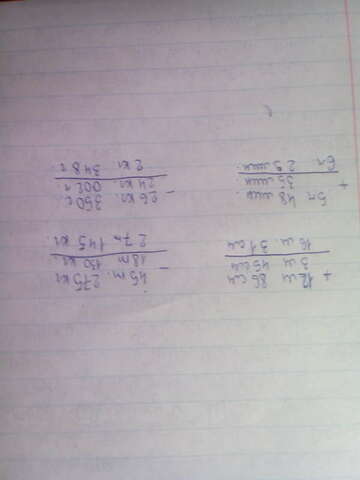 + 12 м 86 см
3 м 45 см
16 м. 31 см
45 т. 275 кг
- 18 т 130 кг
27 т 145 кг.
5ч 48 мин.
+ 35 мин
6ч 23 мин.
- 26 кг. 350 г.
24 кг. 002 г.
2 кг 348 г.